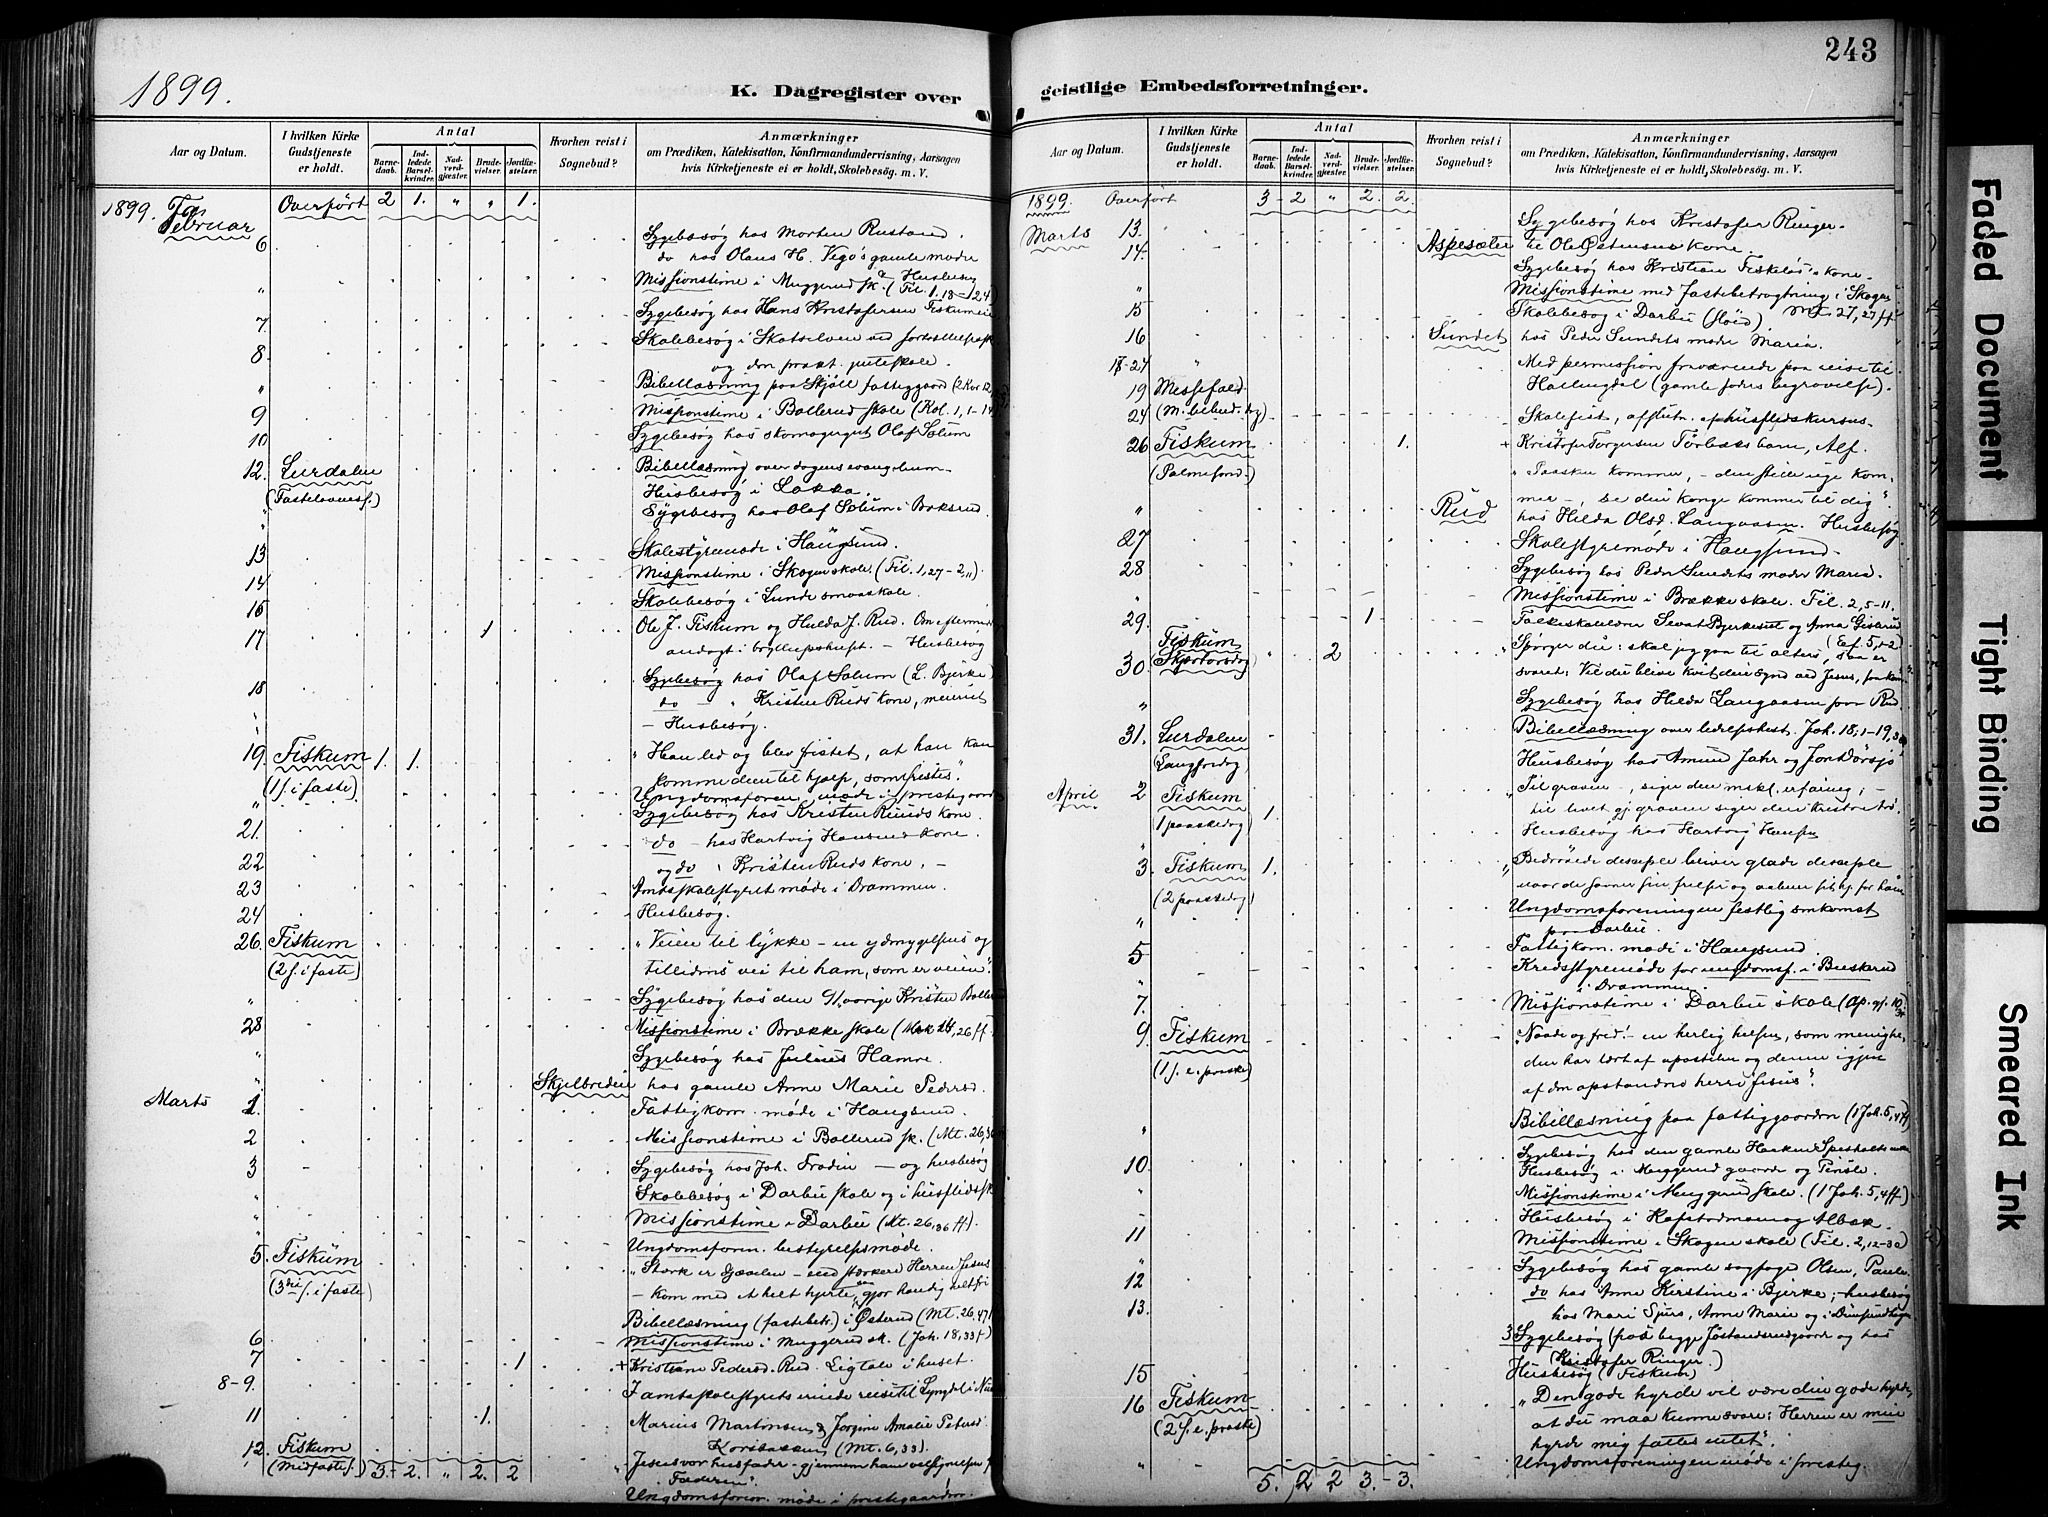 1899.
K. Dagregister over
Aar og Datum.
I hvilken Kirke Gudstjeneste er holdt.
Antal
Barnedaab.
Indledede Barselkvinder.
Nadverdgjæster.
Brudevielser.
Jordfæstelser.
Hvorhen reist i Sognebud?
Anmærkninger
om Prædiken, Katekisation, Konfirmandundervisning, Aarsagen
hvis Kirketjeneste ei er holdt, Skolebesøg. m. V.
1899. Februar Overført 2 1. " " 1.
6 Sygebesøg hos Morten Rustand.
do hos Olaus H. Vego's gamle moder
" Missionstime i Muggerud sk. (Fil. 1. 18-24) & Husbesøg
7 Sygebesøg hos Hans Kristofersen Fiskumeie
8 Skolebesøg i Skotselven ved fortsættelsessk.
og den prakt. pigeskole.
" Bibellæsning paa Skjøll fattiggaard (2 Kor 12,
9 Missionstime i Bollerud skole (Kol. 1, 1-14)
10 Sygebesøg hos skomagergut Olaf Solum
12. Lurdalen Bibellæsning over dagens evangelium.
(Fastelavnsf.) Husbesøg i Lokka.
" Sygebesøg hos Olaf Solum i Boksrud.
13 Skolestyremøde i Haugsund.
14 Missionstime i Skogen skole. (Fil. 1, 27-2, 11)
15 Skolebesøg i Lunde smaaskole.
17 1 Ole J. Fiskum og Hulda J. Rud. Om eftermiddagen
andagt i bryllupshuset. - Husbesøg
18 Sygebesøg hos Olaf Solum (L. Bjerke)
do - " Kristen Ruds kone, meieriet
" - Husbesøg.
19. Fiskum 1. 1. "Han led og blev fristet, at han kan
(1 f. i faste) komme dem til hjælp, som fristes".
" Ungdomsforen. møde i prestegaarden
21. Sygebesøg hos Kristen Ruuds kone.
do - hos Hartvig Hansens kone.
22 og do " Kristen Ruds kone, -
23 Amtsskolestyret møde i Drammen.
24 Husbesøg.
26. Fiskum "Veien til lykke - en ydmygelses og
(2 f. i faste) tillidens vei til ham, som er veien".
" Sygebesøg hos den 91 aarige Kristen Bollerud
28 Missionstime i Brække skole (Mrk 14, 26 ff)
" Sygebesøg hos Julius Hamre.
" Skjelbreden hos gamle Anne Marie Pedersd.
Marts 1. Fattigkom. møde i Haugsund.
2 Missionstime i Bollerud sk. (Mt. 26, 36
3 Sygebesøg hos Joh. Frodin - og husbesøg
" Skolebesøg i Darbu skole og i husflidssk.
" Missionstime i Darbu (Mt. 26, 36 ff).
" Ungdomsforen. bestyrelsesmøde.
5. Fiskum "Stærk er Djævelen - end stærkere Herren Jesus
(3die f. i faste) - kom med et helt hjerte, saa gjør han dig helt fri
Bibellæsning (fastebetr.) i Østerud (Mt. 26, 47
6 Missionstime i Muggerud sk. (Joh. 18, 33 f)
7 1 + Kristiane Pedersd. Rud. Ligtale i huset.
8-9. I amtsskolestyrets ærinde reise til Lyngdal i Num
11 1. Marius Martinsen & Jorgine Amalie Petersd.
Korsbakken (Mt. 6, 33).
12. Fiskum 3. - 2. " 2. 2 " Jesus vor husfader - gjennem ham velsignelsen f
(Midfaste f.) Faderen"
Ungdomsforen. møde i prestegaarden.
243
geistlige Embedsforretninger.
Aar og Datum.
I hvilken Kirke Gudstjeneste er holdt.
Antal
Barnedaab.
Indledede Barselkvinder.
Nadverdgjæster.
Brudevielser.
Jordfæstelser.
Hvorhen reist i Sognebud?
Anmærkninger
om Prædiken, Katekisation, Konfirmandundervisning, Aarsagen
hvis Kirketjeneste ei er holdt, Skolebesøg m. V.
1899. Overført 3 - 2 " 2. 2.
Marts 13. Sygebesøg hos Kristofer Ringer.
14. Aspesæter til Ole Østensens kone.
Sygebesøg hos Kristian Fiskeløs's kone.
" Missionstime med fastebetragtning i Skogen
15 Skolebesøg i Darbu (Høid). Mt. 27, 27 ff
16 Sundet hos Peder Sundets moder Maria.
17-24 " Med permission fraværende paa reise til
19 Messefald Hallingdal (gamle faders begravelse).
24 (M. bebud. dg) Skolefest, afslutn. af husflidskursus.
26 Fiskum 1. + Kristofer Torgersen Torbæks barn, Alf.
(Palmesønd.) "Paasken kommer, - den stille uge kom-
mer -, se din konge kommer til dig".
" Rud hos Hilda Olsd. Langaasen. Husbesøg
27 Skolestyremøde i Haugsund.
28 Sygebesøg hos Peder Sundets moder Maria.
" Missionstime i Brække skole. Fil. 2, 5-11.
29. 1 Folkeskolelærer Sevat Bjerkeset og Anna Gislerud
Fiskum (Ef. 5, 1-2)
30 (Skjærtorsdag) " " 2 " Spørger du: skal jeg gaa til alters, saa er
svaret: Vil du blive kvit din synd ved Jesus, saa kom
" Sygebesøg hos Hilda Langaasen paa Rud.
31. Lurdalen Bibellæsning over lidelseshist. Joh. 18, 1-19, 30
(Langfredag) Husbesøg hos Amund Jahr og Jon Dørsjø
April 2 Fiskum 1. "Til graven -, siger den mskl. erfaring; -
(1 paaskedag) til livet gj. graven siger den kristne tro
" Husbesøg hos Hartvig Hansen
3. Fiskum 1. " Bedrøvede disciple bliver glade disciple
(2 paaskedag) naar de savner sin frelser og aabner sit hj. for ham
" Ungdomsforeningen festlig smkomst
paa Darbu.
5 Fattigkom. møde i Haugsund.
" Kredsstyremøde for ungdomsf. i Buskerud
i Drammen
7. Missionstime i Darbu skole (Ap. gj. 10,
9. Fiskum "Naade og fred! - en herlig hilsen, som menighe-
(1 f. e. paaske) den har lært af apostelen og denne igjen
af den opstandne herre Jesus".
" Bibellæsning paa fattiggaarden (1 Joh. 5, 4 ff)
10. Sygebesøg hos den gamle Haaken Spitholts
Husbesøg i Muggerud gaarde og Teigle.
" Missionstime i Muggerud skole. (1 Joh. 5, 4 ff)
11 Husbesøg i Kopstadmoen og Albæk.
" Missionstime i Skogen skole (Fil. 2, 12-30)
12 Sygebesøg hos gamle sagfoged Olsen,
13. do hos Anne Kirstine i Bjerke; - husbesøg
hos Mari Sjurs, Anne Marie og i
3 Sygebesøg (paa begge Jøstandrudgaarde og hos
Kristofer Ringer.)
15 Husbesøg (Fiskum)
16 Fiskum "Den gode hyrde vil være din gode hyrde,
(2 f. e. paaske) at du maa kunne svare: Herren er min
hyrde mig fattes intet".
" 5. 2 2 3. - 3. Ungdomsforeningen møde i presteg.
Faded Document
Tight Binding
Smeared Ink